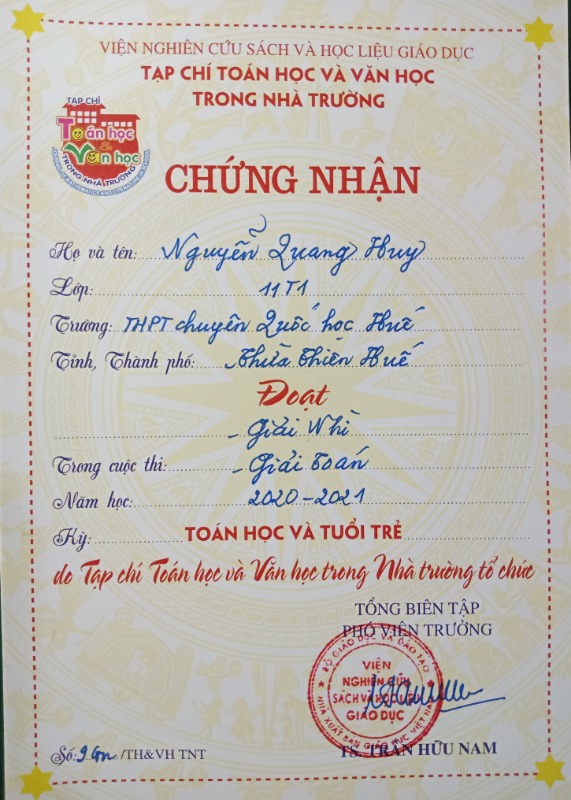 VIỆN NGHIÊN CỨU SÁCH VÀ HỌC LIỆU GIÁO DỤC
TẠP CHÍ TOÁN HỌC VÀ VĂN HỌC
TRONG NHÀ TRƯỜNG
TẠP CHÍ
Toán học
&
Văn học
TRONG NHÀ TRƯỜNG
CHỨNG NHẬN
Họ và tên: Nguyễn Quang Huy
Lớp: 11T1
Trường: THPT chuyên Quốc học Huế
Tỉnh, Thành phố: Thừa Thiên Huế
Đoạt
- Giải Nhì
Trong cuộc thi: - Giải Toán
Năm học: 2020-2021
Kỳ: TOÁN HỌC VÀ TUỔI TRẺ
do Tạp chí Toán học và Văn học trong Nhà trường tổ chức
TỔNG BIÊN TẬP
PHÓ VIỆN TRƯỞNG
BỘ GIÁO DỤC VÀ ĐÀO TẠO
VIỆN
NGHIÊN CỨU
SÁCH VÀ HỌC LIỆU
GIÁO DỤC
NHÀ XUẤT BẢN GIÁO DỤC VIỆT NAM
TS. TRẦN HỮU NAM
Số: /TH&VH TNT